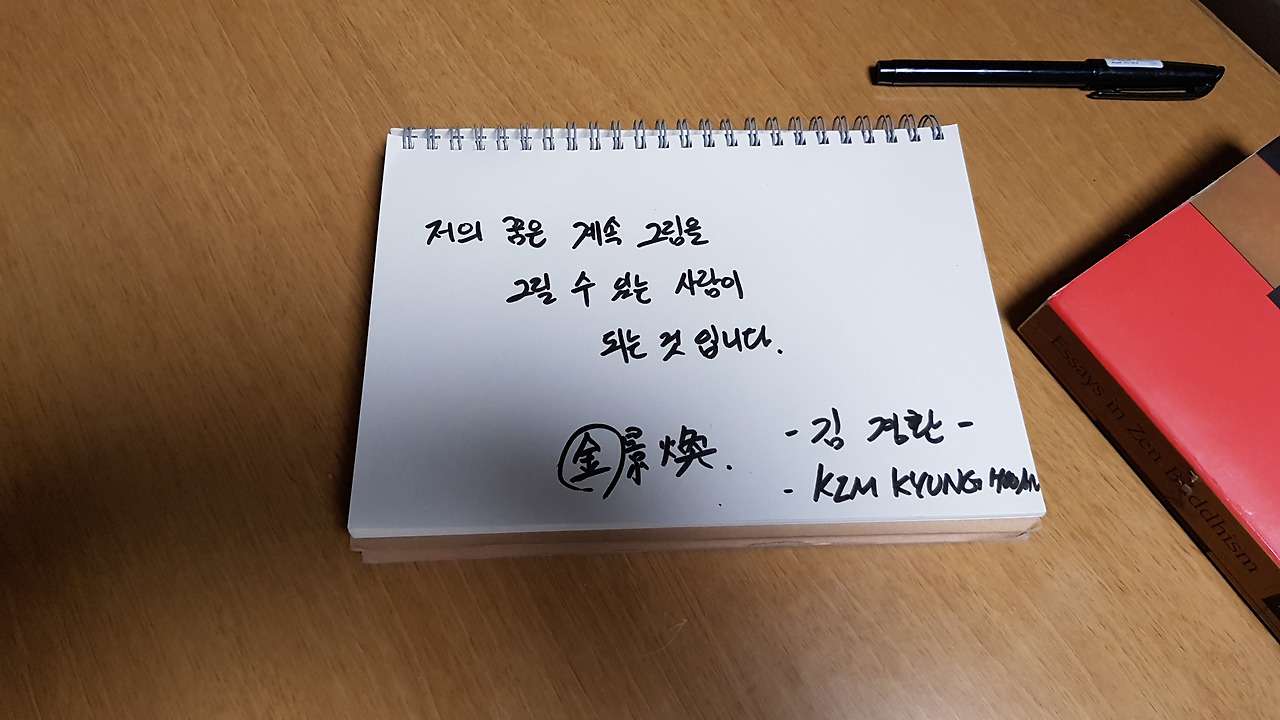 저의 꿈은 계속 그림을
그릴 수 있는 사람이
되는 것 입니다.
金景煥.
- 김 경환 -
- KIM KYUNG HOOAN
Essays in Zen Buddhism